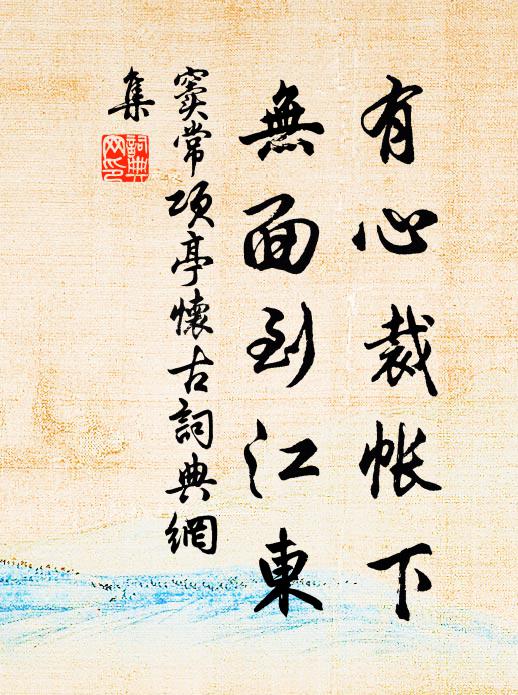 有心裁帐下
無面到江東
窦常項亭懷古詞典網
集
詞典
网印